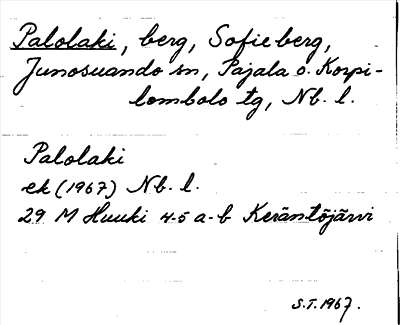 Palolaki, berg, Sofieberg,
Junosuando sn, Pajala o. Korpi-
lombolo tg, Nb. l.
Palolaki
ek (1967) Nb. l.
29 M Huuki 4-5 a-b Keräntöjärvi
S.T. 1967.